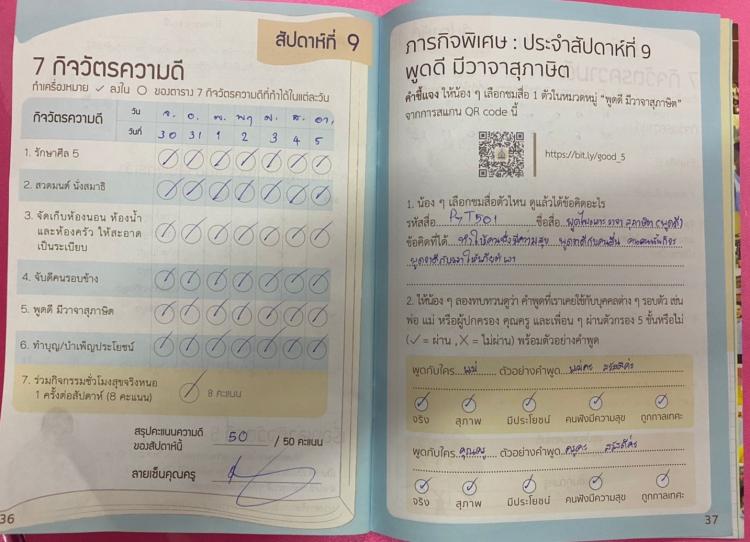 สัปดาห์ที่ 9
7 กิจวัตรความดี
ทำเครื่องหมาย ✓ ลงใน ○ ของตาราง 7 กิจวัตรความดีที่ทำได้ในแต่ละวัน
กิจวัตรความดี วัน จ. อ. พ. พฤ ศ. ส. อา.
วันที่ 30 31 1 2 3 4 5
1. รักษาศีล 5
2. สวดมนต์ นั่งสมาธิ
3. จัดเก็บห้องนอน ห้องน้ำ
และห้องครัว ให้สะอาด
เป็นระเบียบ
4. จับดีคนรอบข้าง
5. พูดดี มีวาจาสุภาษิต
6. ทำบุญ/บำเพ็ญประโยชน์
7. ร่วมกิจกรรมชั่วโมงสุขจริงหนอ
1 ครั้งต่อสัปดาห์ (8 คะแนน) ✓ 8 คะแนน
สรุปคะแนนความดี
ของสัปดาห์นี้ 50 / 50 คะแนน
ลายเซ็นคุณครู
36
ภารกิจพิเศษ : ประจำสัปดาห์ที่ 9
พูดดี มีวาจาสุภาษิต
คำชี้แจง ให้น้อง ๆ เลือกชมสื่อ 1 ตัวในหมวดหมู่ “พูดดี มีวาจาสุภาษิต”
จากการสแกน QR code นี้
https://bit.ly/good_5
1. น้อง ๆ เลือกชมสื่อตัวไหน ดูแล้วได้ข้อคิดอะไร
รหัสสื่อ ชื่อสื่อ วาจา สุภาษิต (พูดดี)
ข้อคิดที่ได้ ทำให้ มีความสุข พูดจาดีกับคนอื่น
พูดจาดีกับเขา
2. ให้น้อง ๆ ลองทบทวนดูว่า คำพูดที่เราเคยใช้กับบุคคลต่าง ๆ รอบตัว เช่น
พ่อ แม่ หรือผู้ปกครอง คุณครู และเพื่อน ๆ ผ่านตัวกรอง 5 ชั้นหรือไม่
(✓ = ผ่าน , X = ไม่ผ่าน) พร้อมตัวอย่างคำพูด
พูดกับใคร แม่ ตัวอย่างคำพูด
จริง สุภาพ มีประโยชน์ คนฟังมีความสุข ถูกกาลเทศะ
พูดกับใคร คุณครู ตัวอย่างคำพูด
จริง สุภาพ มีประโยชน์ คนฟังมีความสุข ถูกกาลเทศะ
37